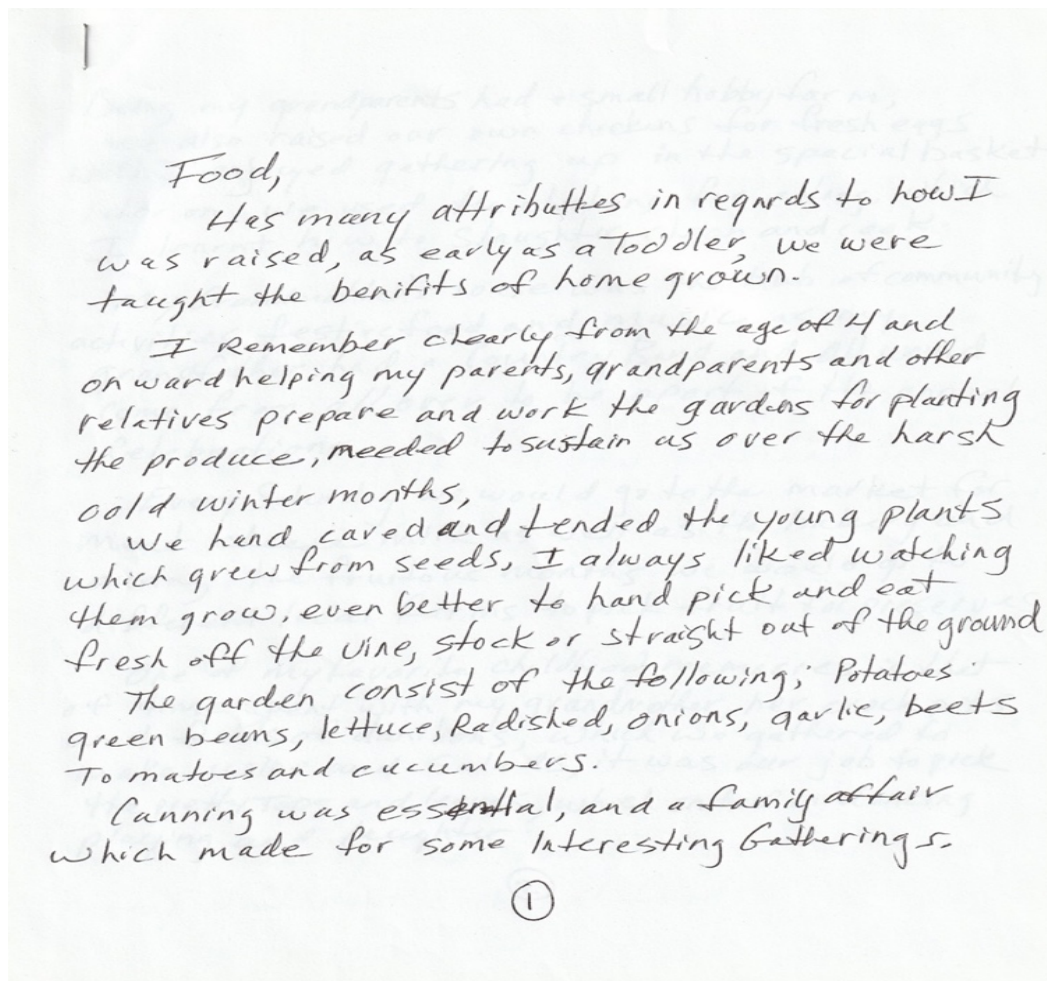 Food,
Has many attributtes in regards to how I
was raised, as early as a Toddler, we were
taught the benifits of home grown.
I Remember clearly from the age of 4 and
onward helping my parents, grandparents and other
relatives prepare and work the gardens for planting
the produce, needed to sustain us over the harsh
cold winter months,
We hand cared and tended the young plants
which grew from seeds, I always liked watching
them grow, even better to hand pick and eat
fresh off the vine, stock or straight out of the ground
The garden consist of the following; Potatoes
green beans, lettuce, Radished, onions, garlic, beets
Tomatoes and cucumbers.
Canning was essential, and a family affair
which made for some Interesting Gatherings.
1